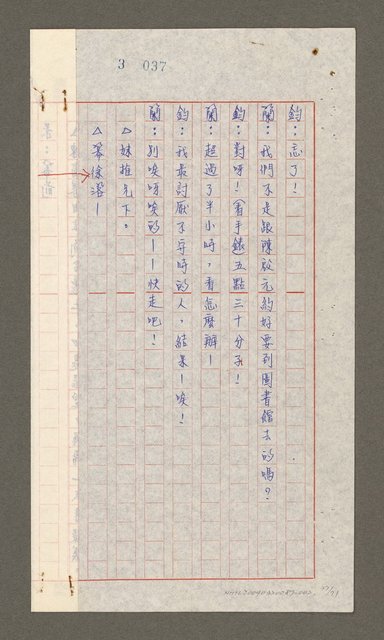 3 037
鈞：忘了！
蘭：我們不是跟陳啟元約好要到圖書館去的嗎？
鈞：對呀！（看手錶）五點三十分了！
蘭：超過了半小時，看怎麼辦—
鈞：我最討厭不守時的人，結果—唉！
蘭：別唉呀唉的——快走吧！
△妹推兄下。
△幕徐落—